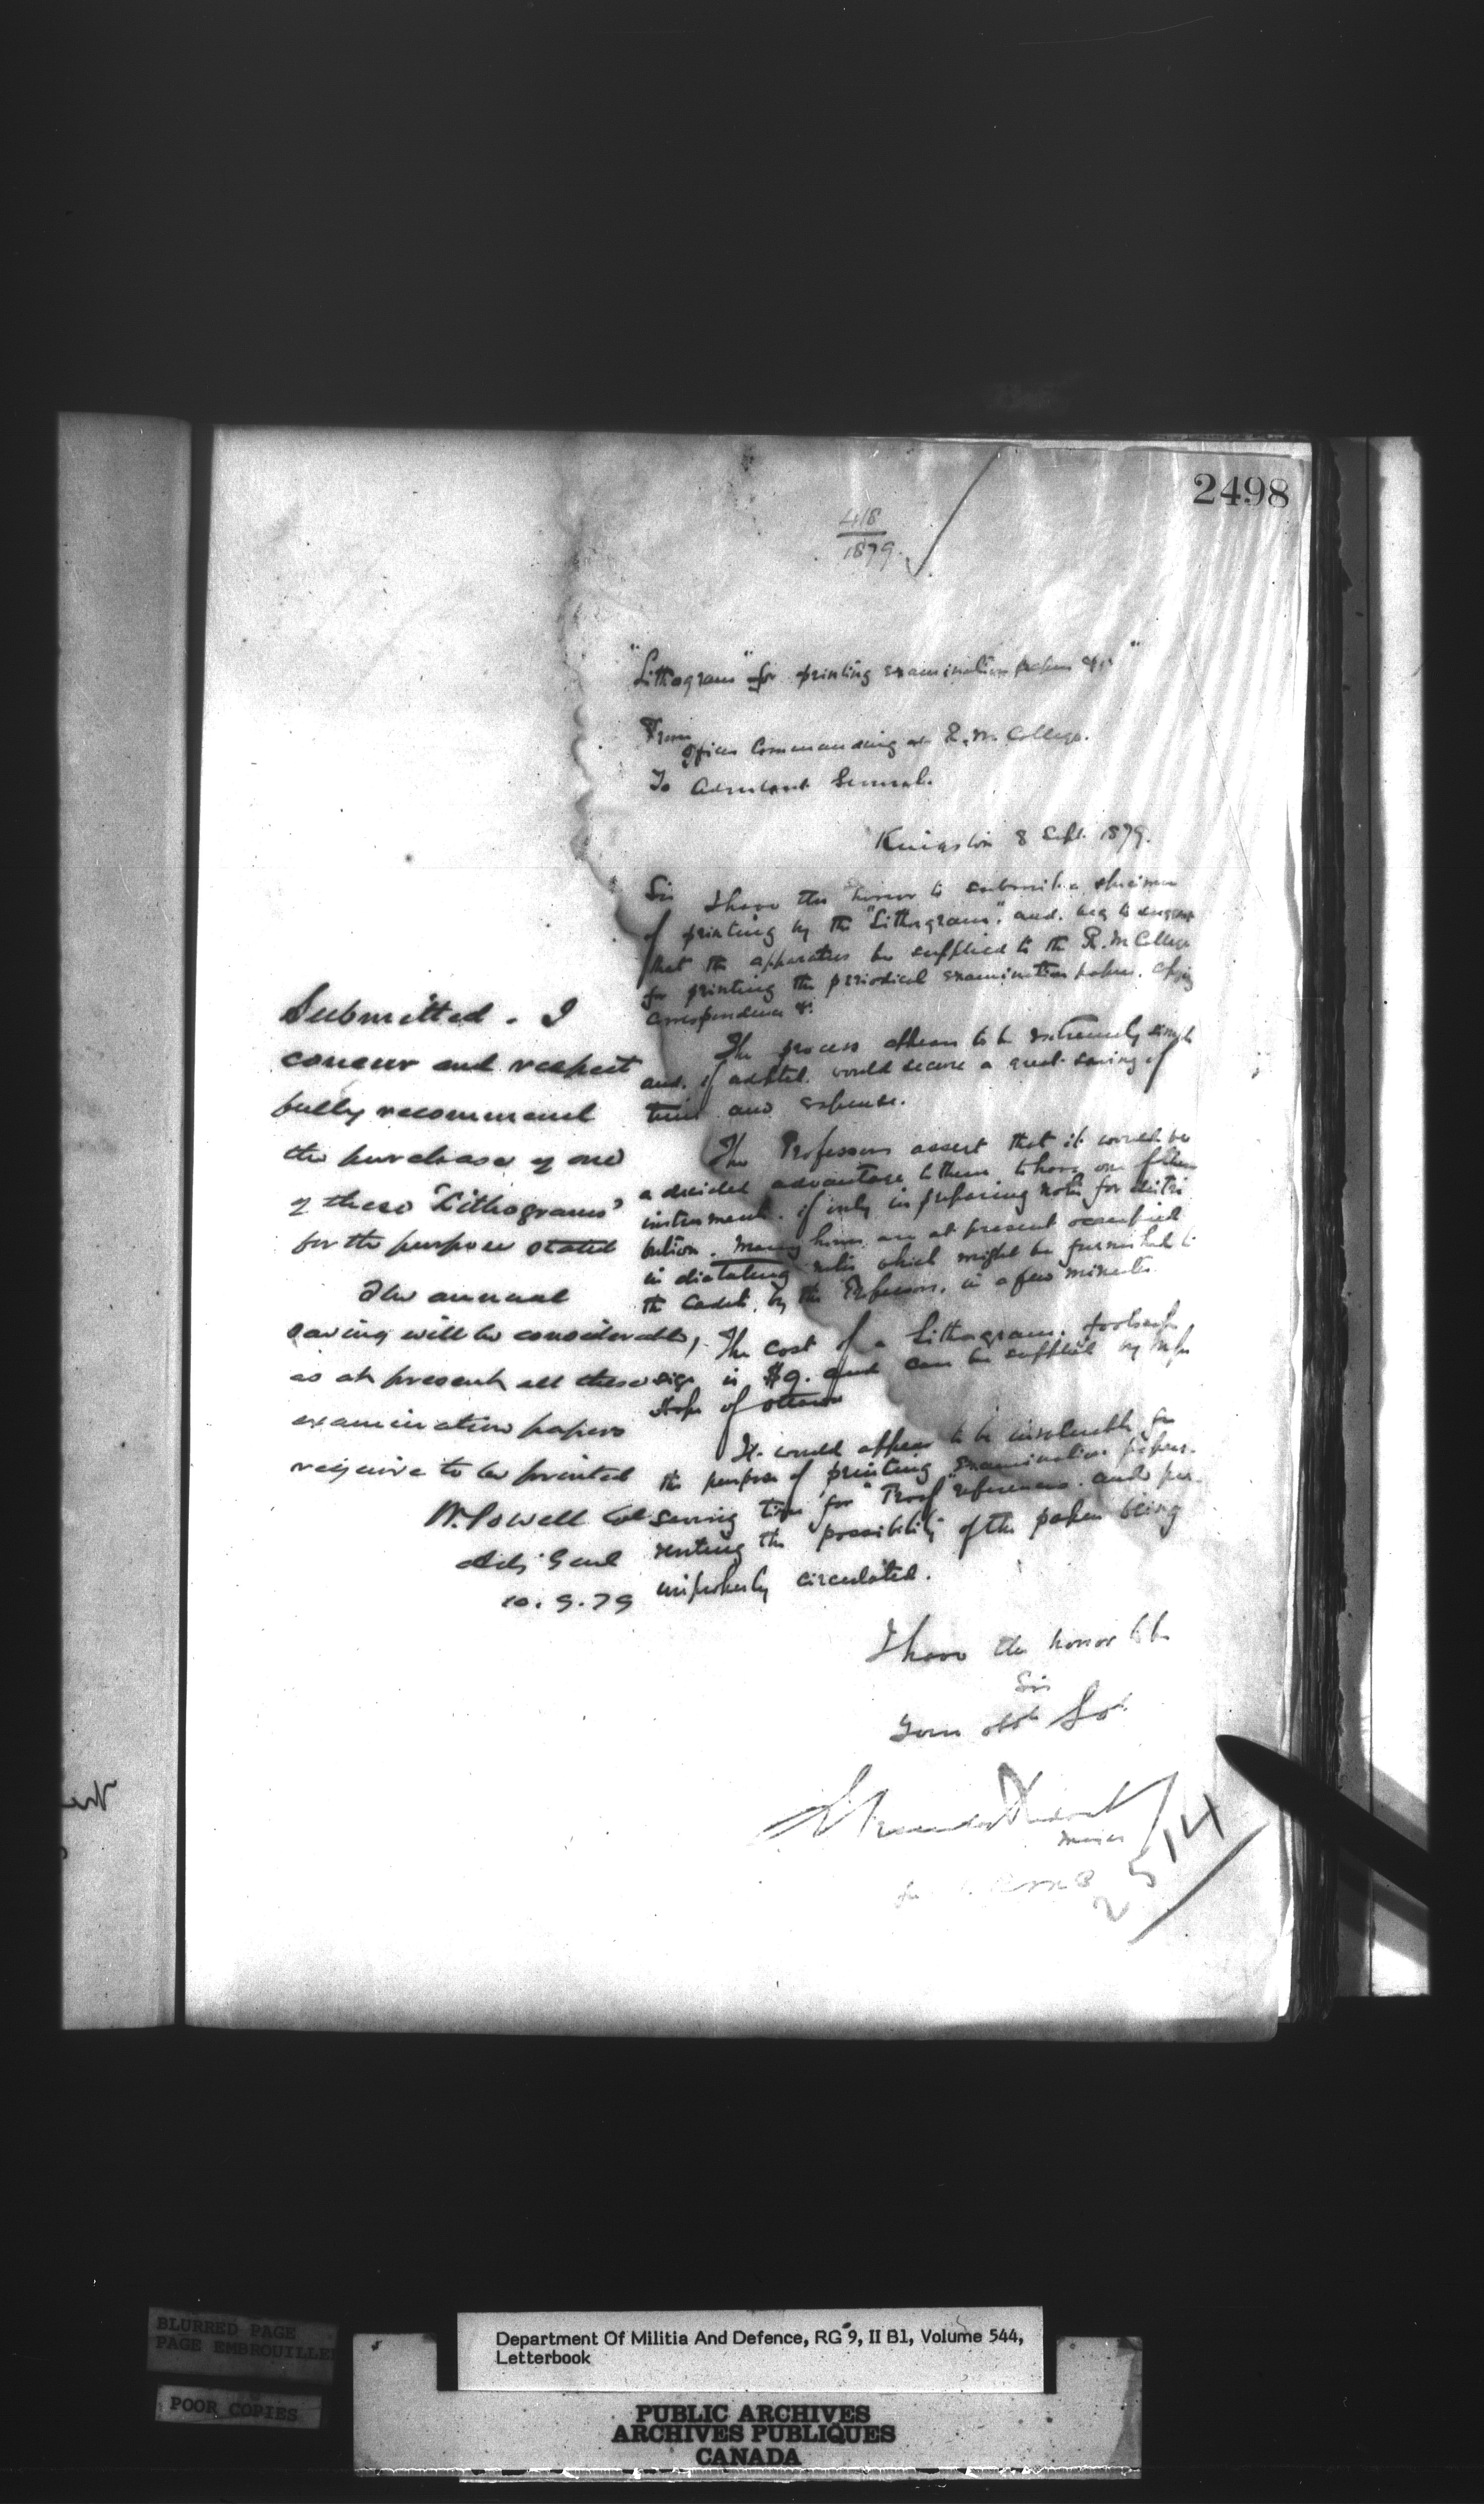 2498
418
1879
"Lithogram" for printing examination papers &c"
From
Officer Commanding at R. M. College.
To Adjutant General.
Kingston 8 Sept. 1879.
Sir I have the honor to submit a specimen
of printing by the "Lithogram", and beg to suggest
that the apparatus be supplied to the R. M College
for printing the periodical examination papers, copying
correspondence &c
The process appears to be extremely simple
and, if adopted, would secure a great saving of
time and expense.
The Professors assert that it would be
a decided advantage to them to have one of these
instruments, if only in preparing notes for distri
bution. Many hours are at present occupied
in dictating notes which might be furnished to
the Cadets, by the Professors, in a few minutes.
The cost of a Lithogram, foolscap
size is $9. and can be supplied by Mess
Hope of Ottawa
It would appear to be invaluable for
the purpose of printing examination papers
saving time for "Proof" references and pre
venting the possibility of the papers being
improperly circulated.
I have the honor to be
Sir
Your obdt Svt
Major
Submitted. I
concur and respect
fully recommend
the purchase of one
of these "Lithograms"
for the purpose stated
The annual
saving will be considerable,
as at present all these
examination papers
require to be printed
W. Powell Col
Adj Genl
10. 9. 79
2514
BLURRED PAGE
PAGE EMBROUILLEE
POOR COPIES
Department Of Militia And Defence, RG 9, II B1, Volume 544,
Letterbook
PUBLIC ARCHIVES
ARCHIVES PUBLIQUES
CANADA